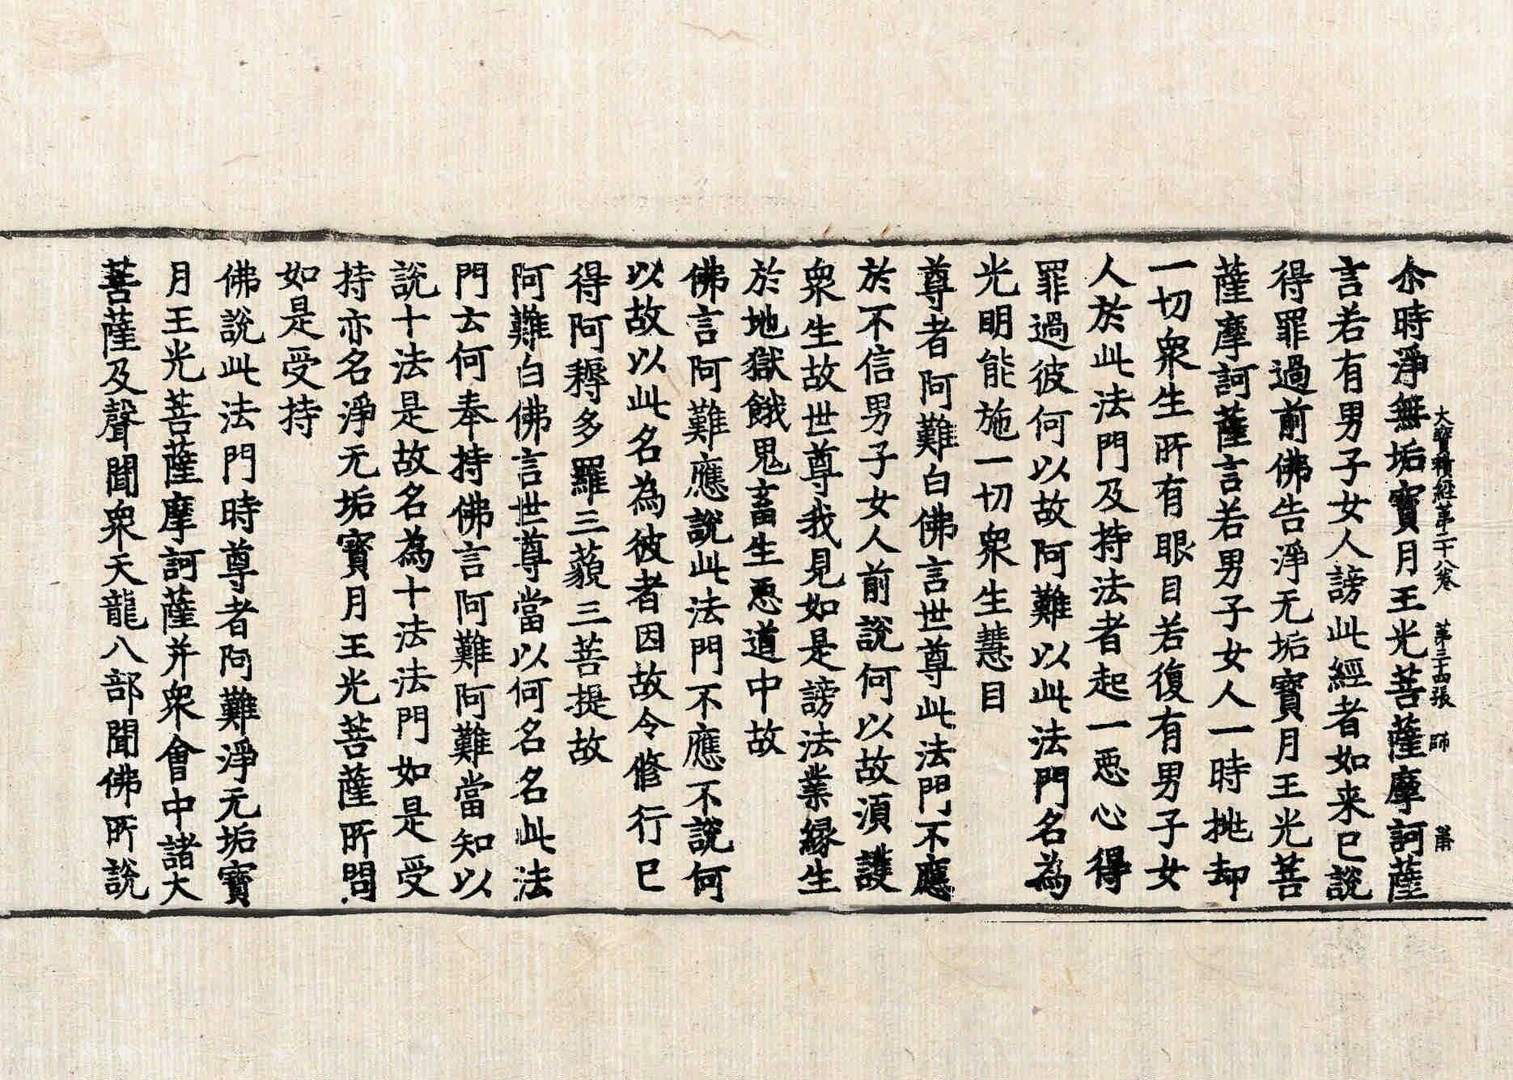 大寶積經苐二十八卷 苐三十四張 師
尒時淨無垢寶月王光菩薩摩訶薩
言若有男子女人謗此經者如来已說
得罪過前佛告淨无垢寶月王光菩
薩摩訶薩言若男子女人一時挑却
一切衆生所有眼目若復有男子女
人於此法門及持法者起一惡心得
罪過彼何以故阿難以此法門名為
光明能施一切衆生慧目
尊者阿難白佛言世尊此法門不應
於不信男子女人前說何以故湏護
衆生故世尊我見如是謗法業緣生
於地獄餓鬼畜生惡道中故
佛言阿難應說此法門不應不說何
以故以此名為彼者因故令修行已
得阿耨多羅三藐三菩提故
阿難白佛言世尊當以何名名此法
門云何奉持佛言阿難阿難當知以
說十法是故名為十法法門如是受
持亦名淨无垢寶月王光菩薩所問
如是受持
佛說此法門時尊者阿難淨无垢寶
月王光菩薩摩訶薩并衆會中諸大
菩薩及聲聞衆天龍八部聞佛所說